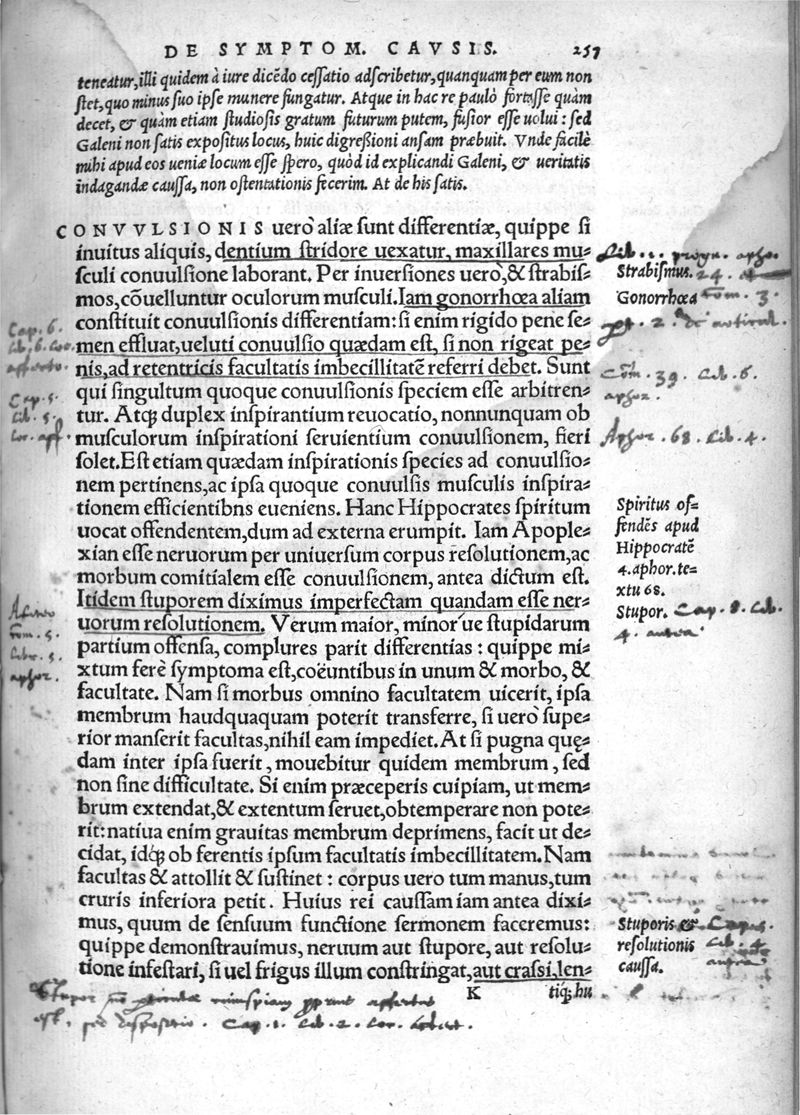 DE SYMPTOM. CAVSIS. 257
teneatur, illi quidem à iure dicẽdo cessatio adscribetur, quanquam per eum non
stet, quo minus suo ipse munere fungatur. Atque in hac re paulò fortasse quàm
decet, & quàm etiam studiosis gratum futurum putem, fusior esse uolui: sed
Galeni non satis expositus locus, huic digreßioni ansam præbuit. Vnde facilè
mihi apud eos ueniæ locum esse spero, quòd id explicandi Galeni, & ueritatis
indagandæ caussa, non ostentationis fecerim. At de his satis.
CONVVLSIONIS uerò aliæ sunt differentiæ, quippe si
inuitus aliquis, dentium stridore uexatur, maxillares mu-
sculi conuulsione laborant. Per inuersiones uerò, & strabis-
mos, cõuelluntur oculorum musculi. Iam gonorrhœa aliam
constituit conuulsionis differentiam: si enim rigido pene se-
men effluat, ueluti conuulsio quædam est, si non rigeat pe-
nis, ad retentricis facultatis imbecillitatẽ referri debet. Sunt
qui singultum quoque conuulsionis speciem esse arbitren-
tur. Atq; duplex inspirantium reuocatio, nonnunquam ob
musculorum inspirationi seruientium conuulsionem, fieri
solet. Est etiam quædam inspirationis species ad conuulsio-
nem pertinens, ac ipsa quoque conuulsis musculis inspira-
tionem efficientibns eueniens. Hanc Hippocrates spiritum
uocat offendentem, dum ad externa erumpit. Iam Apople-
xian esse neruorum per uniuersum corpus resolutionem, ac
morbum comitialem esse conuulsionem, antea dictum est.
Itidem stuporem diximus imperfectam quandam esse ner-
uorum resolutionem. Verum maior, minor ue stupidarum
partium offensa, complures parit differentias: quippe mi-
xtum ferè symptoma est, coëuntibus in unum & morbo, &
facultate. Nam si morbus omnino facultatem uicerit, ipsa
membrum haudquaquam poterit transferre, si uerò supe-
rior manserit facultas, nihil eam impediet. At si pugna quę-
dam inter ipsa fuerit, mouebitur quidem membrum, sed
non sine difficultate. Si enim præceperis cuipiam, ut mem-
brum extendat, & extentum seruet, obtemperare non pote-
rit: natiua enim grauitas membrum deprimens, facit ut de-
cidat, idq; ob ferentis ipsum facultatis imbecillitatem. Nam
facultas & attollit & sustinet: corpus uero tum manus, tum
cruris inferiora petit. Huius rei caussam iam antea dixi-
mus, quum de sensuum functione sermonem faceremus:
quippe demonstrauimus, neruum aut stupore, aut resolu-
tione infestari, si uel frigus illum constringat, aut crassi, len-
K tiq; hu
Strabismus. 24.
Gonorrhœa com. 3.
Com. 39. Lib. 6.
aphor.
Aphor. 68. Lib. 4.
Spiritus of-
fendẽs apud
Hippocratẽ
4. aphor. te-
xtu 68.
Stupor. Cap. 8. Lib.
4.
Stuporis &
resolutionis Lib. 4
caussa.
Cap. 6.
Cap. 5.
Lib. 5.
com. 5.
aphor.
Cap. 1. Lib. 2.